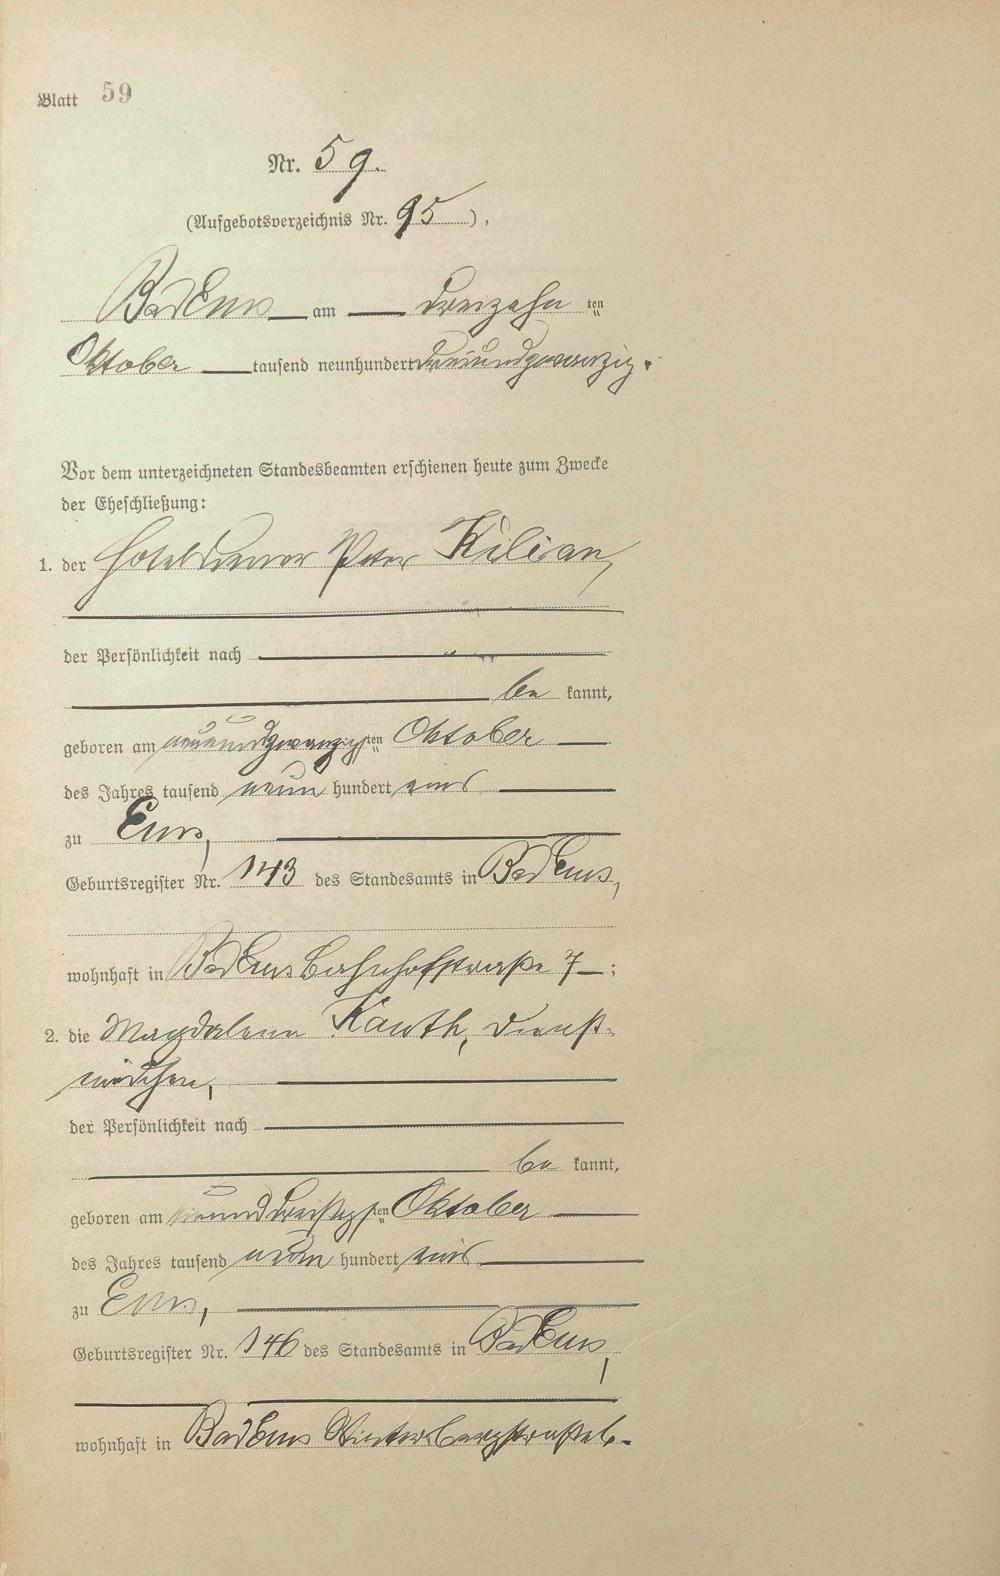 Blatt 59
Nr. 59.
(Aufgebotsverzeichnis Nr. 95).
Bad Ems am dreizehn ten
Oktober tausend neunhundert dreiundzwanzig.
Vor dem unterzeichneten Standesbeamten erschienen heute zum Zwecke
der Eheschließung:
1. der Hoteldiener Peter Kilian,
der Persönlichkeit nach
be kannt,
geboren am neunundzwanzigsten Oktober
des Jahres tausend neun hundert eins
zu Ems,
Geburtsregister Nr. 143 des Standesamts in Bad Ems,
wohnhaft in Bad Ems Bahnhofstraße 7;
2. die Magdalena Kauth, Dienst-
mädchen,
der Persönlichkeit nach
be kannt,
geboren am einunddreißigsten Oktober
des Jahres tausend neun hundert eins
zu Ems,
Geburtsregister Nr. 146 des Standesamts in Bad Ems,
wohnhaft in Bad Ems Wintersbergstraße